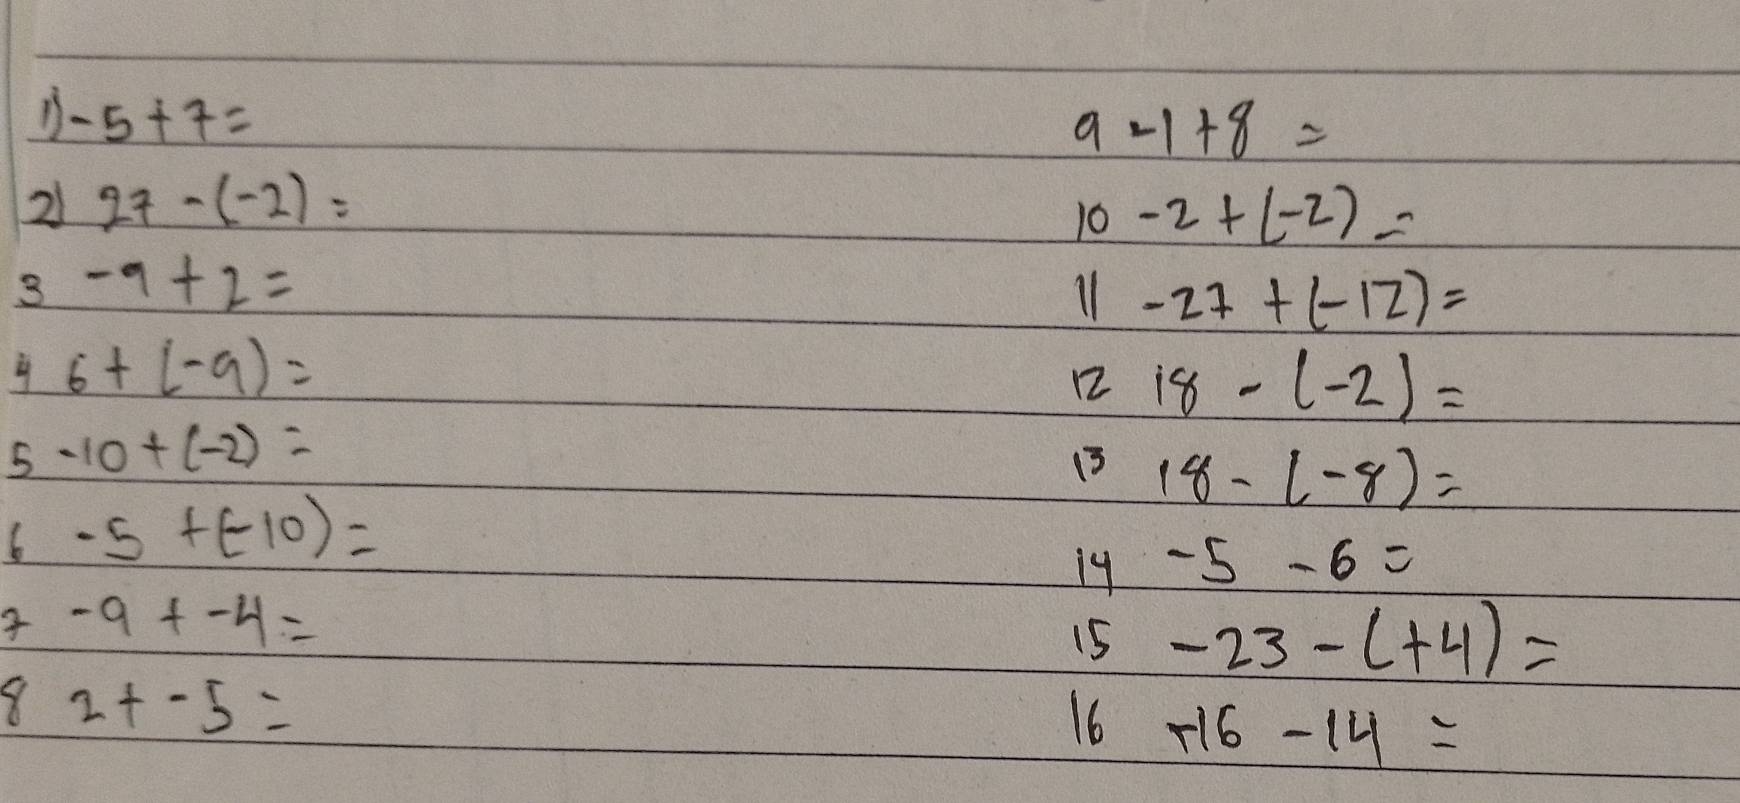 1) -5+7=
2) 27 -(-2)=
3 -9+2=
4 6+(-9)=
5 -10+(-2)=
6 -5 +(-10)=
7 -9 + -4=
8 2+ -5=
9 -1+8 =
10 -2+(-2)=
11 -27 +(-12)=
12 18 - (-2)=
13 18- (-8)=
14 -5 -6=
15 -23-(+4)=
16 +16 -14 =